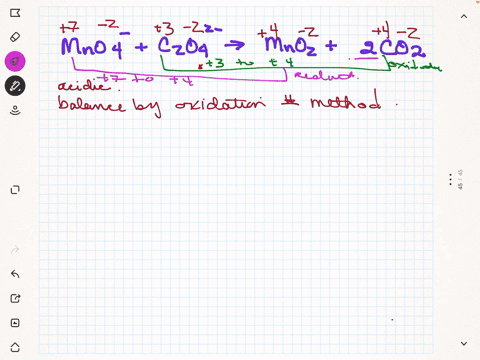 +7 -2 +3 -2 +4 -2 +4 -2
MnO4⁻ + C2O4²⁻ → MnO2 + 2CO2
+3 to +4 oxidation
+7 to +4 reduct.
acidic.
balance by oxidation # method.
45 / 45